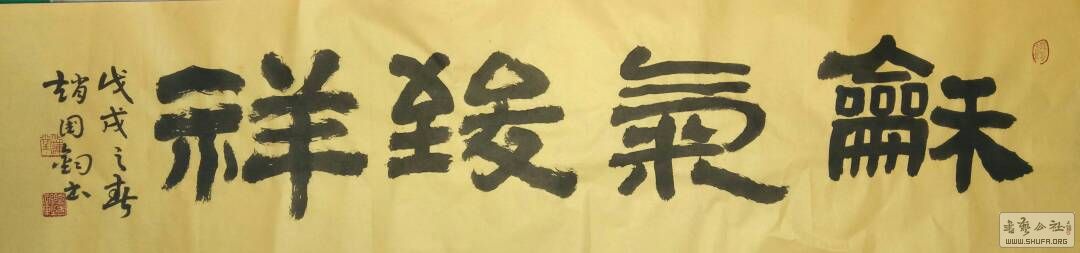 龢氣致祥
戊戌之春
趙国鈞书
书艺公社
WWW.SHUFA.ORG